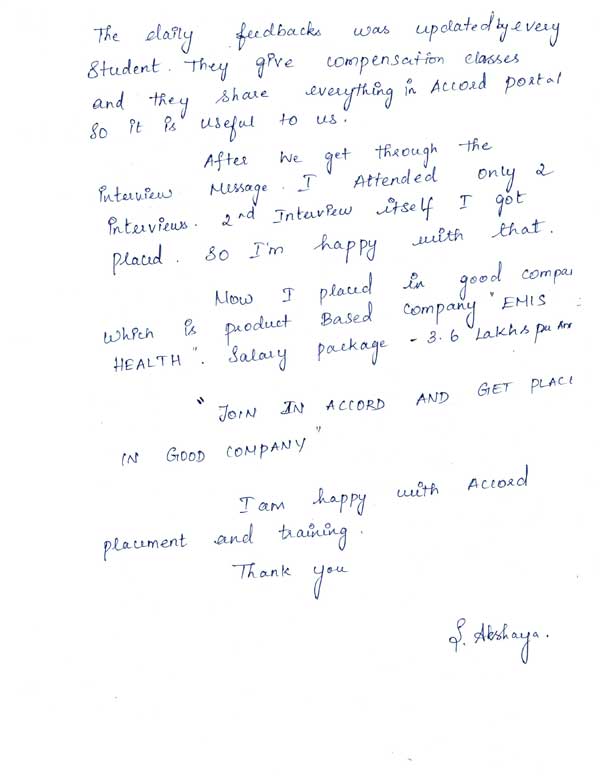 The daily feedbacks was updated by every
Student. They give compensation classes
and they share everything in Accord portal
So it is useful to us.
After we get through the
interview Message. I Attended only 2
interviews. 2nd Interview itself I got
placed. So I'm happy with that.
Now I placed in good compa
which is product Based company "EMIS
HEALTH". Salary package - 3.6 Lakhs per An
"JOIN IN ACCORD AND GET PLAC
IN GOOD COMPANY"
I am happy with Accord
placement and training.
Thank you
S. Akshaya.